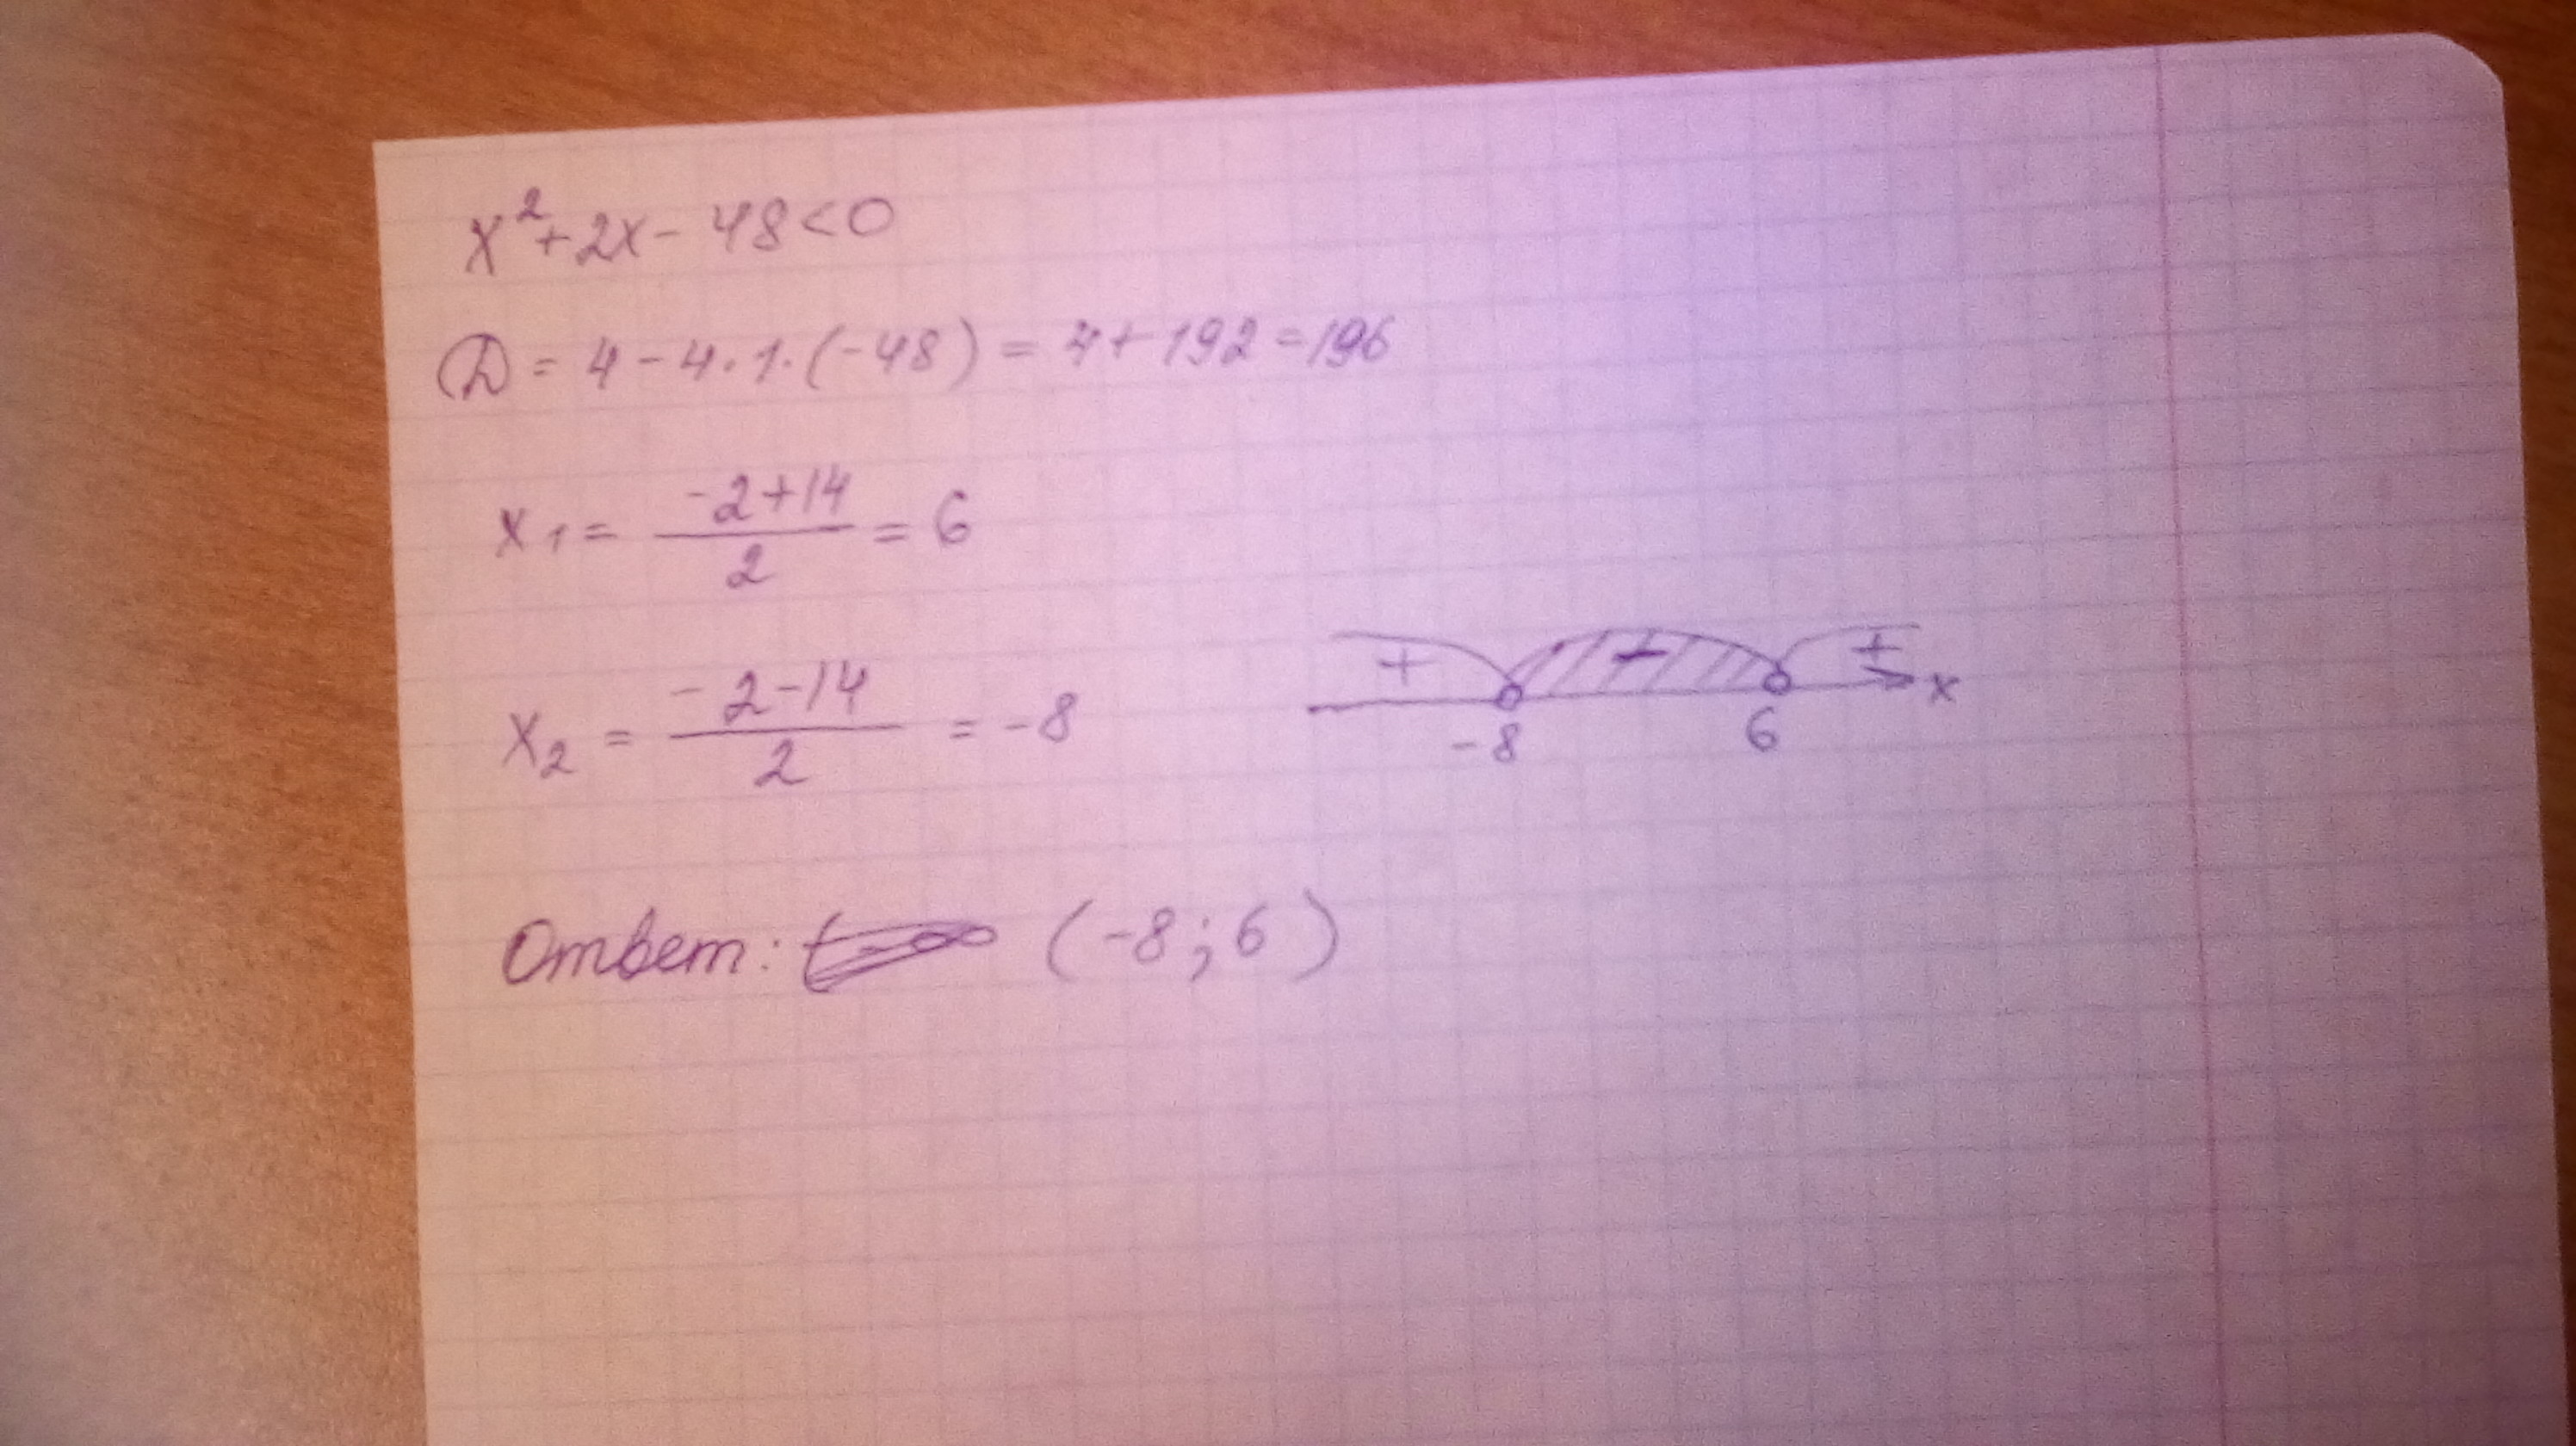 x²+2x-48<0
D = 4-4·1·(-48) = 4+192=196
x₁ = (-2+14)/2 = 6
x₂ = (-2-14)/2 = -8
+ - + x
-8 6
Ответ: (-8;6)